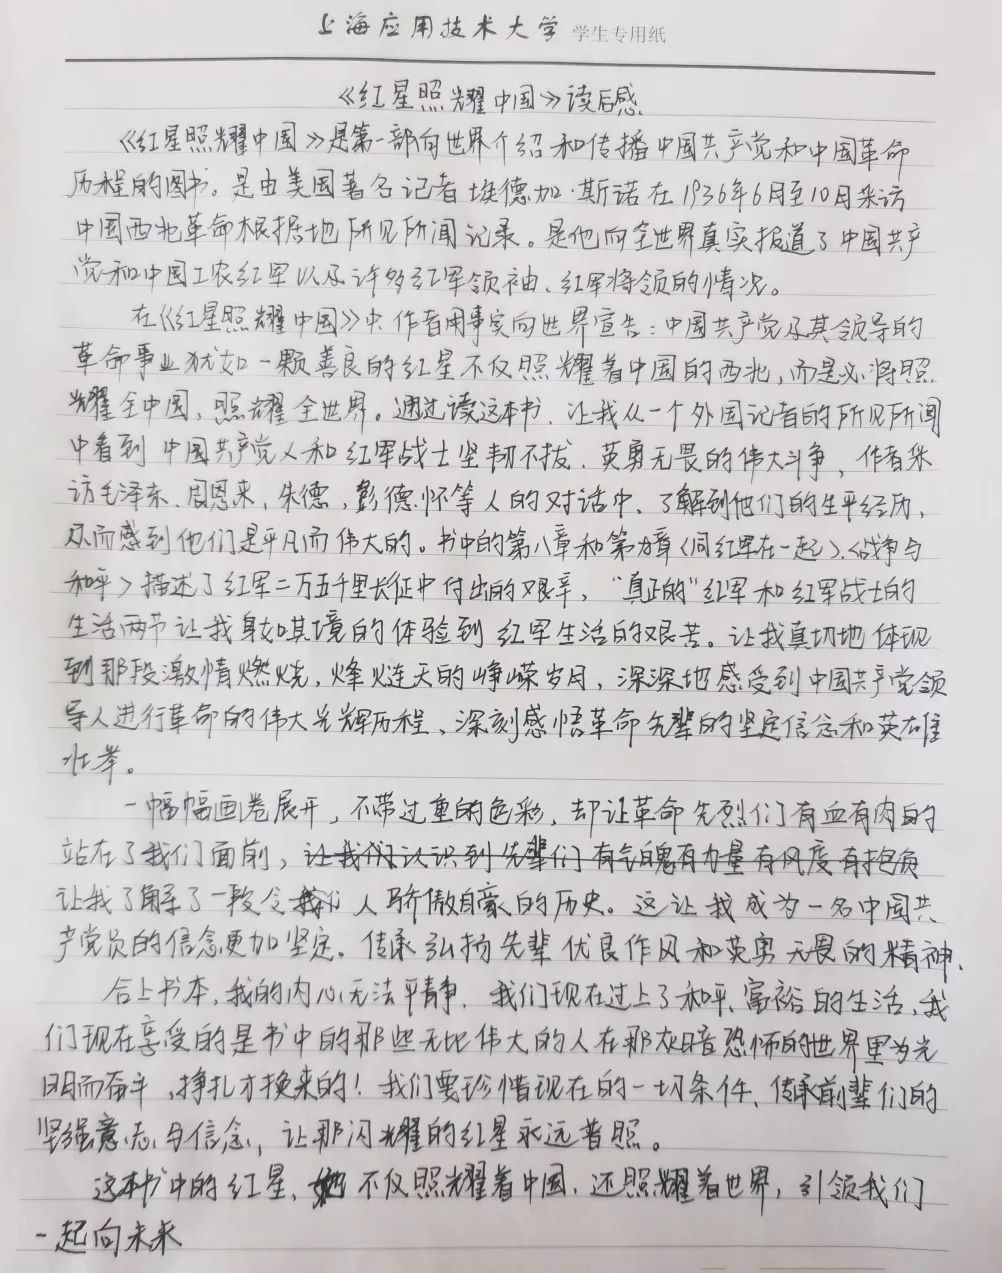 上海应用技术大学 学生专用纸
《红星照耀中国》读后感
《红星照耀中国》是第一部向世界介绍和传播中国共产党和中国革命
历程的图书。是由美国著名记者埃德加·斯诺在1936年6月至10月采访
中国西北革命根据地所见所闻记录。是他向全世界真实报道了中国共产
党和中国工农红军以及许多红军领袖、红军将领的情况。
在《红星照耀中国》中,作者用事实向世界宣告:中国共产党及其领导的
革命事业犹如一颗善良的红星不仅照耀着中国的西北,而是必将照
耀全中国,照耀全世界。通过读这本书,让我从一个外国记者的所见所闻
中看到中国共产党人和红军战士坚韧不拔、英勇无畏的伟大斗争,作者采
访毛泽东、周恩来,朱德,彭德怀等人的对话中,了解到他们的生平经历,
从而感到他们是平凡而伟大的。书中的第八章和第九章〈同红军在一起〉、〈战争与
和平〉描述了红军二万五千里长征中付出的艰辛,“真正的”红军和红军战士的
生活两节让我身如其境的体验到红军生活的艰苦。让我真切地体现
到那段激情燃烧,烽火连天的峥嵘岁月,深深地感受到中国共产党领
导人进行革命的伟大光辉历程、深刻感悟革命先辈的坚定信念和英雄
壮举。
一幅幅画卷展开,不带过重的色彩,却让革命先烈们有血有肉的
站在了我们面前,让我们认识到先辈们有气魄有力量有风度有抱负
让我了解了一段令人骄傲自豪的历史。这让我成为一名中国共
产党员的信念更加坚定。传承弘扬先辈优良作风和英勇无畏的精神、
合上书本,我的内心无法平静,我们现在过上了和平、富裕的生活,我
们现在享受的是书中的那些无比伟大的人在那灰暗恐怖的世界里为光
明而奋斗,挣扎才换来的!我们要珍惜现在的一切条件、传承前辈们的
坚强意志与信念,让那闪耀的红星永远普照。
这本书中的红星,不仅照耀着中国,还照耀着世界,引领我们
一起向未来